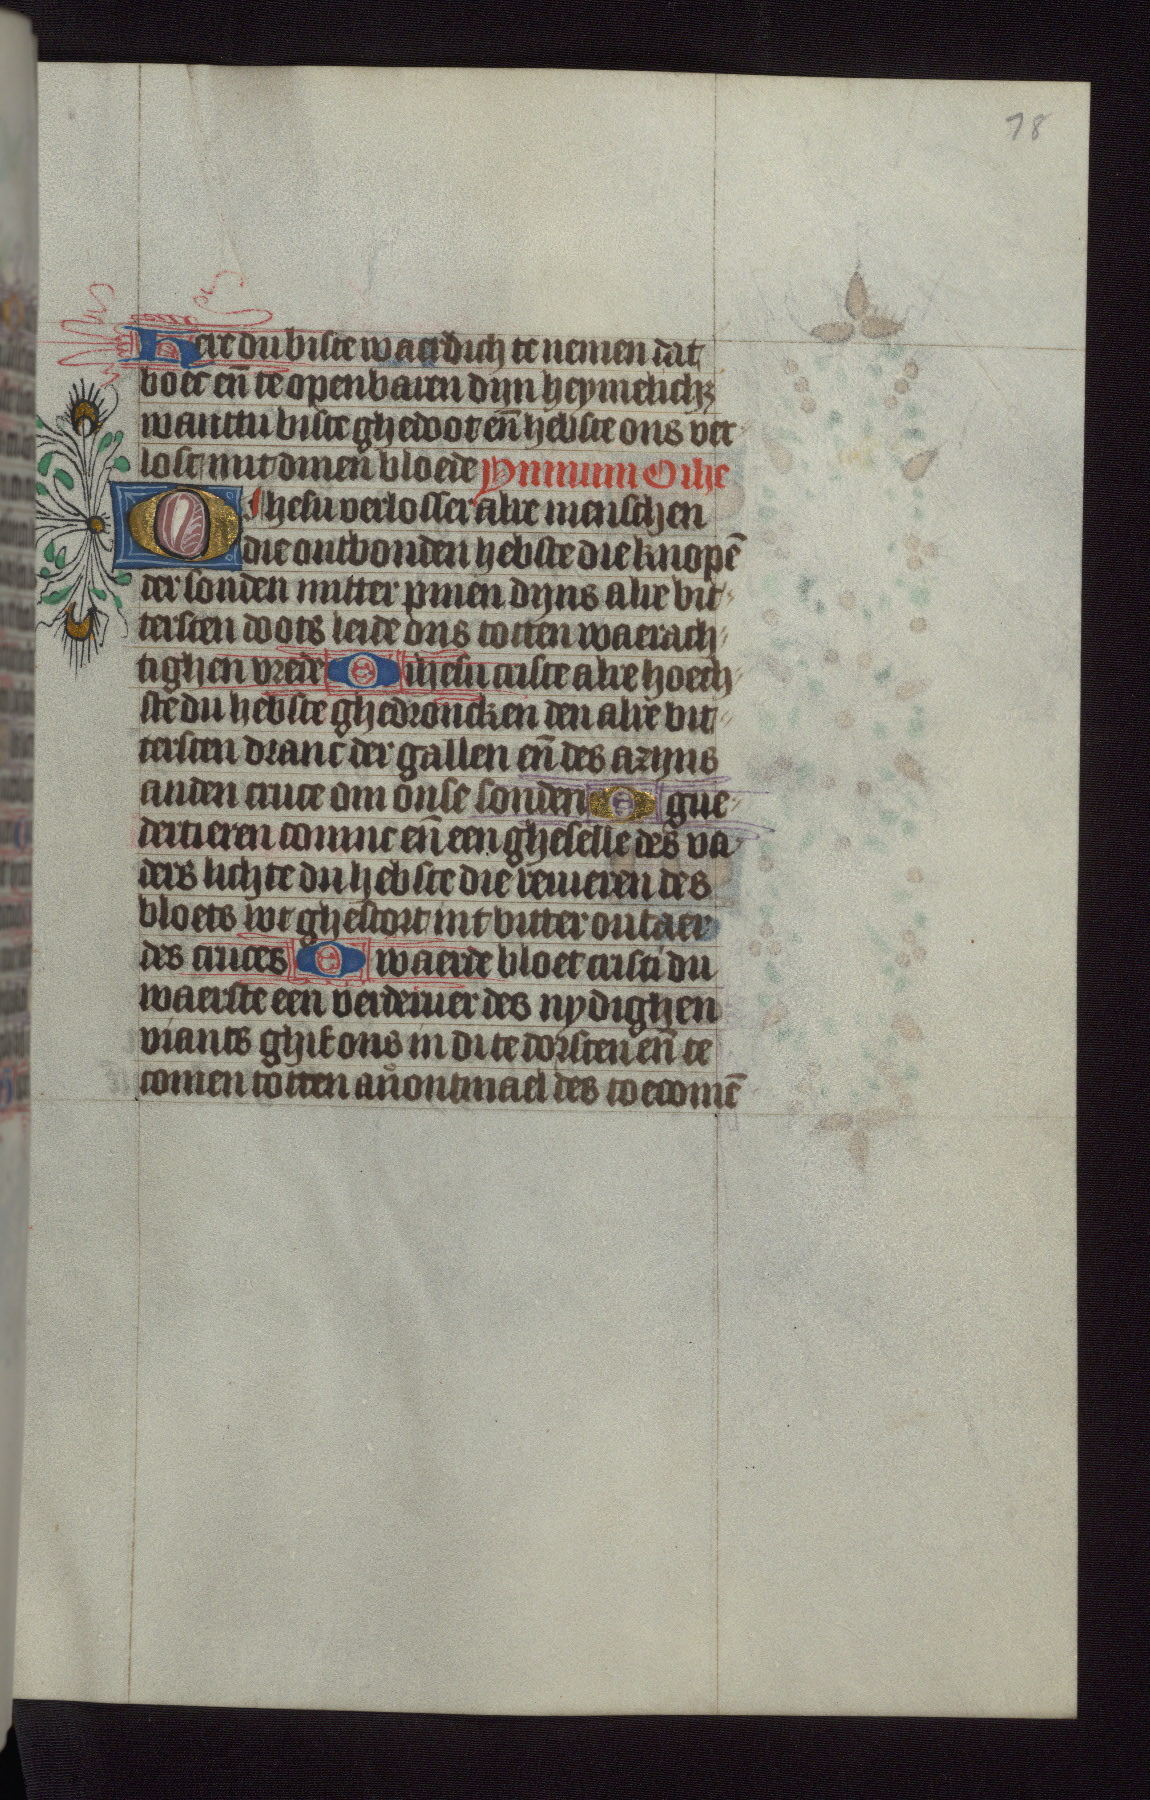 78
Here du biste waerdich te nemen dat
boec en̄ te openbaren dijn heymelichz
wanttu biste ghedoot en̄ hebste ons ver
lost mit dinen bloede Ymnum O ihe
O Ihesu verlosser alre menschen
die ontbonden hebste die knopē
der sonden mitter pinen dijns alre bit-
tersten doots leide ons totten waerach-
tighen vrede O ihesu criste alre hoech-
ste du hebste ghedroncken den alre bit-
tersten dranc der gallen en̄ des azijns
anden cruce om onse sonden O gue-
dertieren coninc en̄ een gheselle des va-
ders lichte du hebste die reuieren des
bloets wt ghestort int bitter outaer
des cruces O waerde bloet cristi du
waerste een verdriuer des nydighen
viants ghif ons in di te dorsten en̄ te
comen totten auontmael des toecomē